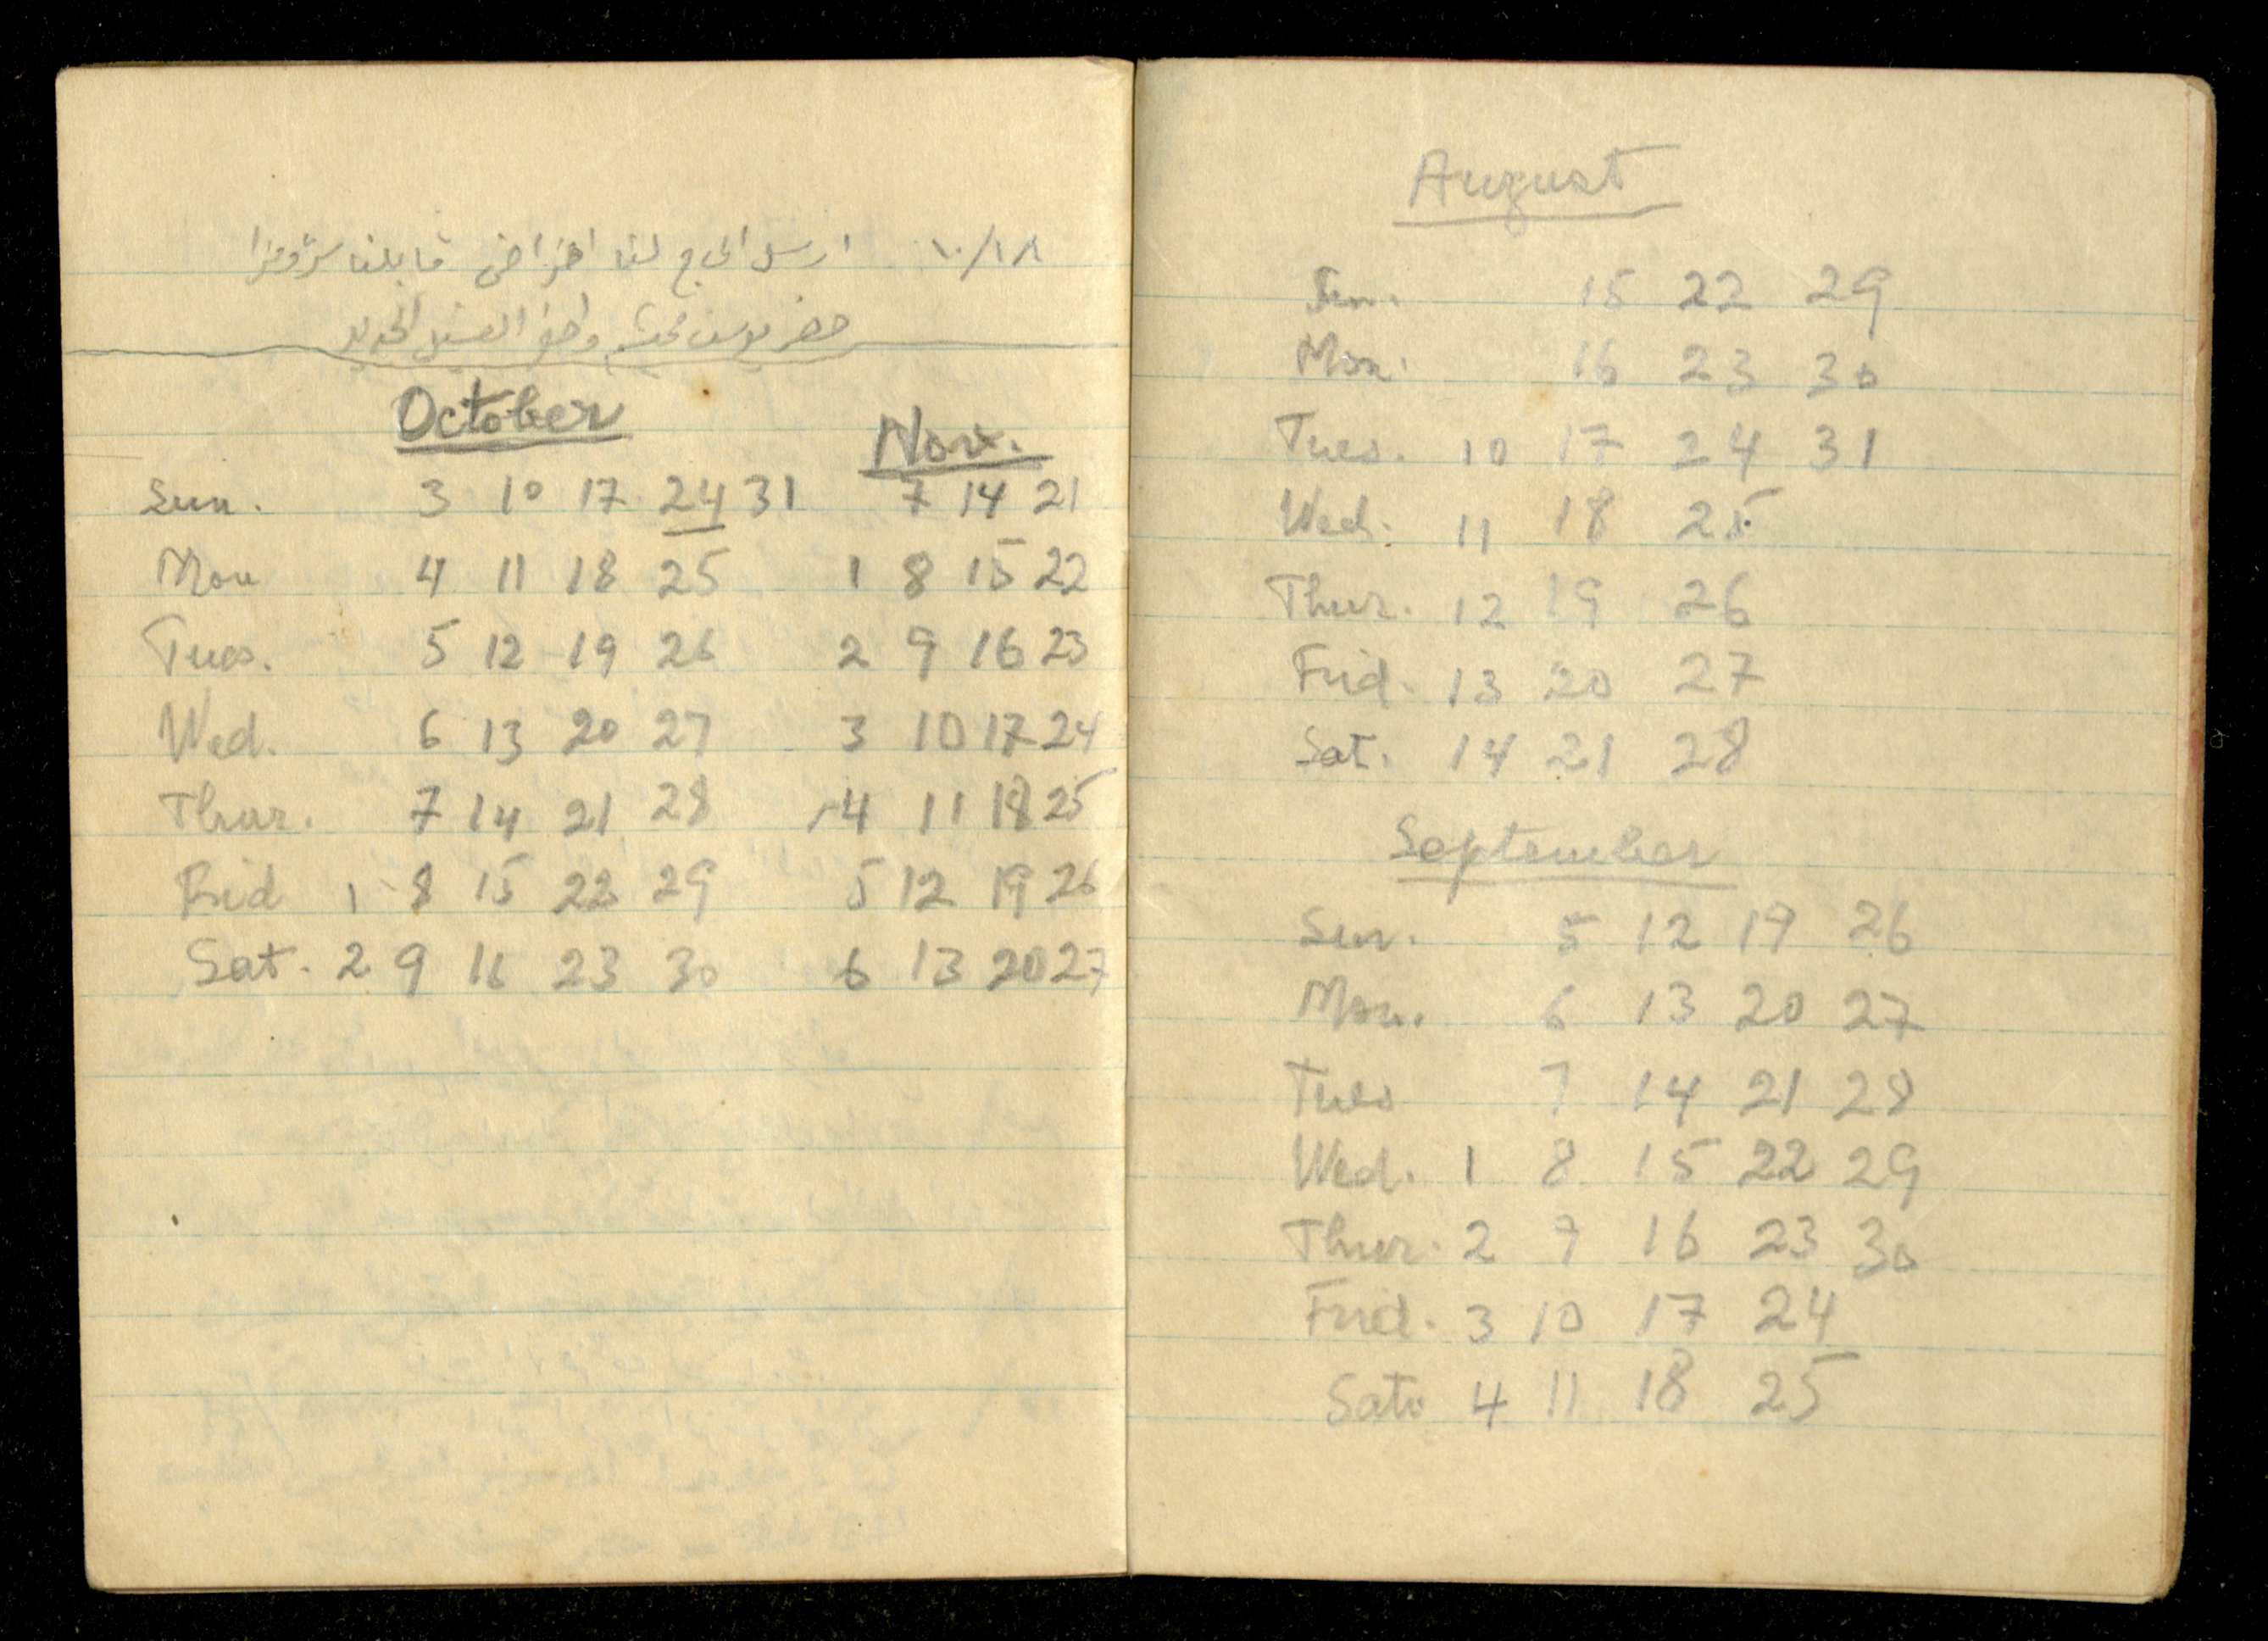 ١٠/١٨ ارسل الحاج لنا اغراض قابلنا
حضر يوسف واخذ الغسيل
October
Nov.
Sun. 3 10 17 24 31 7 14 21
Mon 4 11 18 25 1 8 15 22
Tues. 5 12 19 26 2 9 16 23
Wed. 6 13 20 27 3 10 17 24
Thur. 7 14 21 28 4 11 18 25
Frid 1 8 15 22 29 5 12 19 26
Sat. 2 9 16 23 30 6 13 20 27
August
Sun. 15 22 29
Mon. 16 23 30
Tues. 10 17 24 31
Wed. 11 18 25
Thur. 12 19 26
Frid. 13 20 27
Sat. 14 21 28
September
Sun. 5 12 19 26
Mon. 6 13 20 27
Tues 7 14 21 28
Wed. 1 8 15 22 29
Thur. 2 9 16 23 30
Frid. 3 10 17 24
Sat. 4 11 18 25